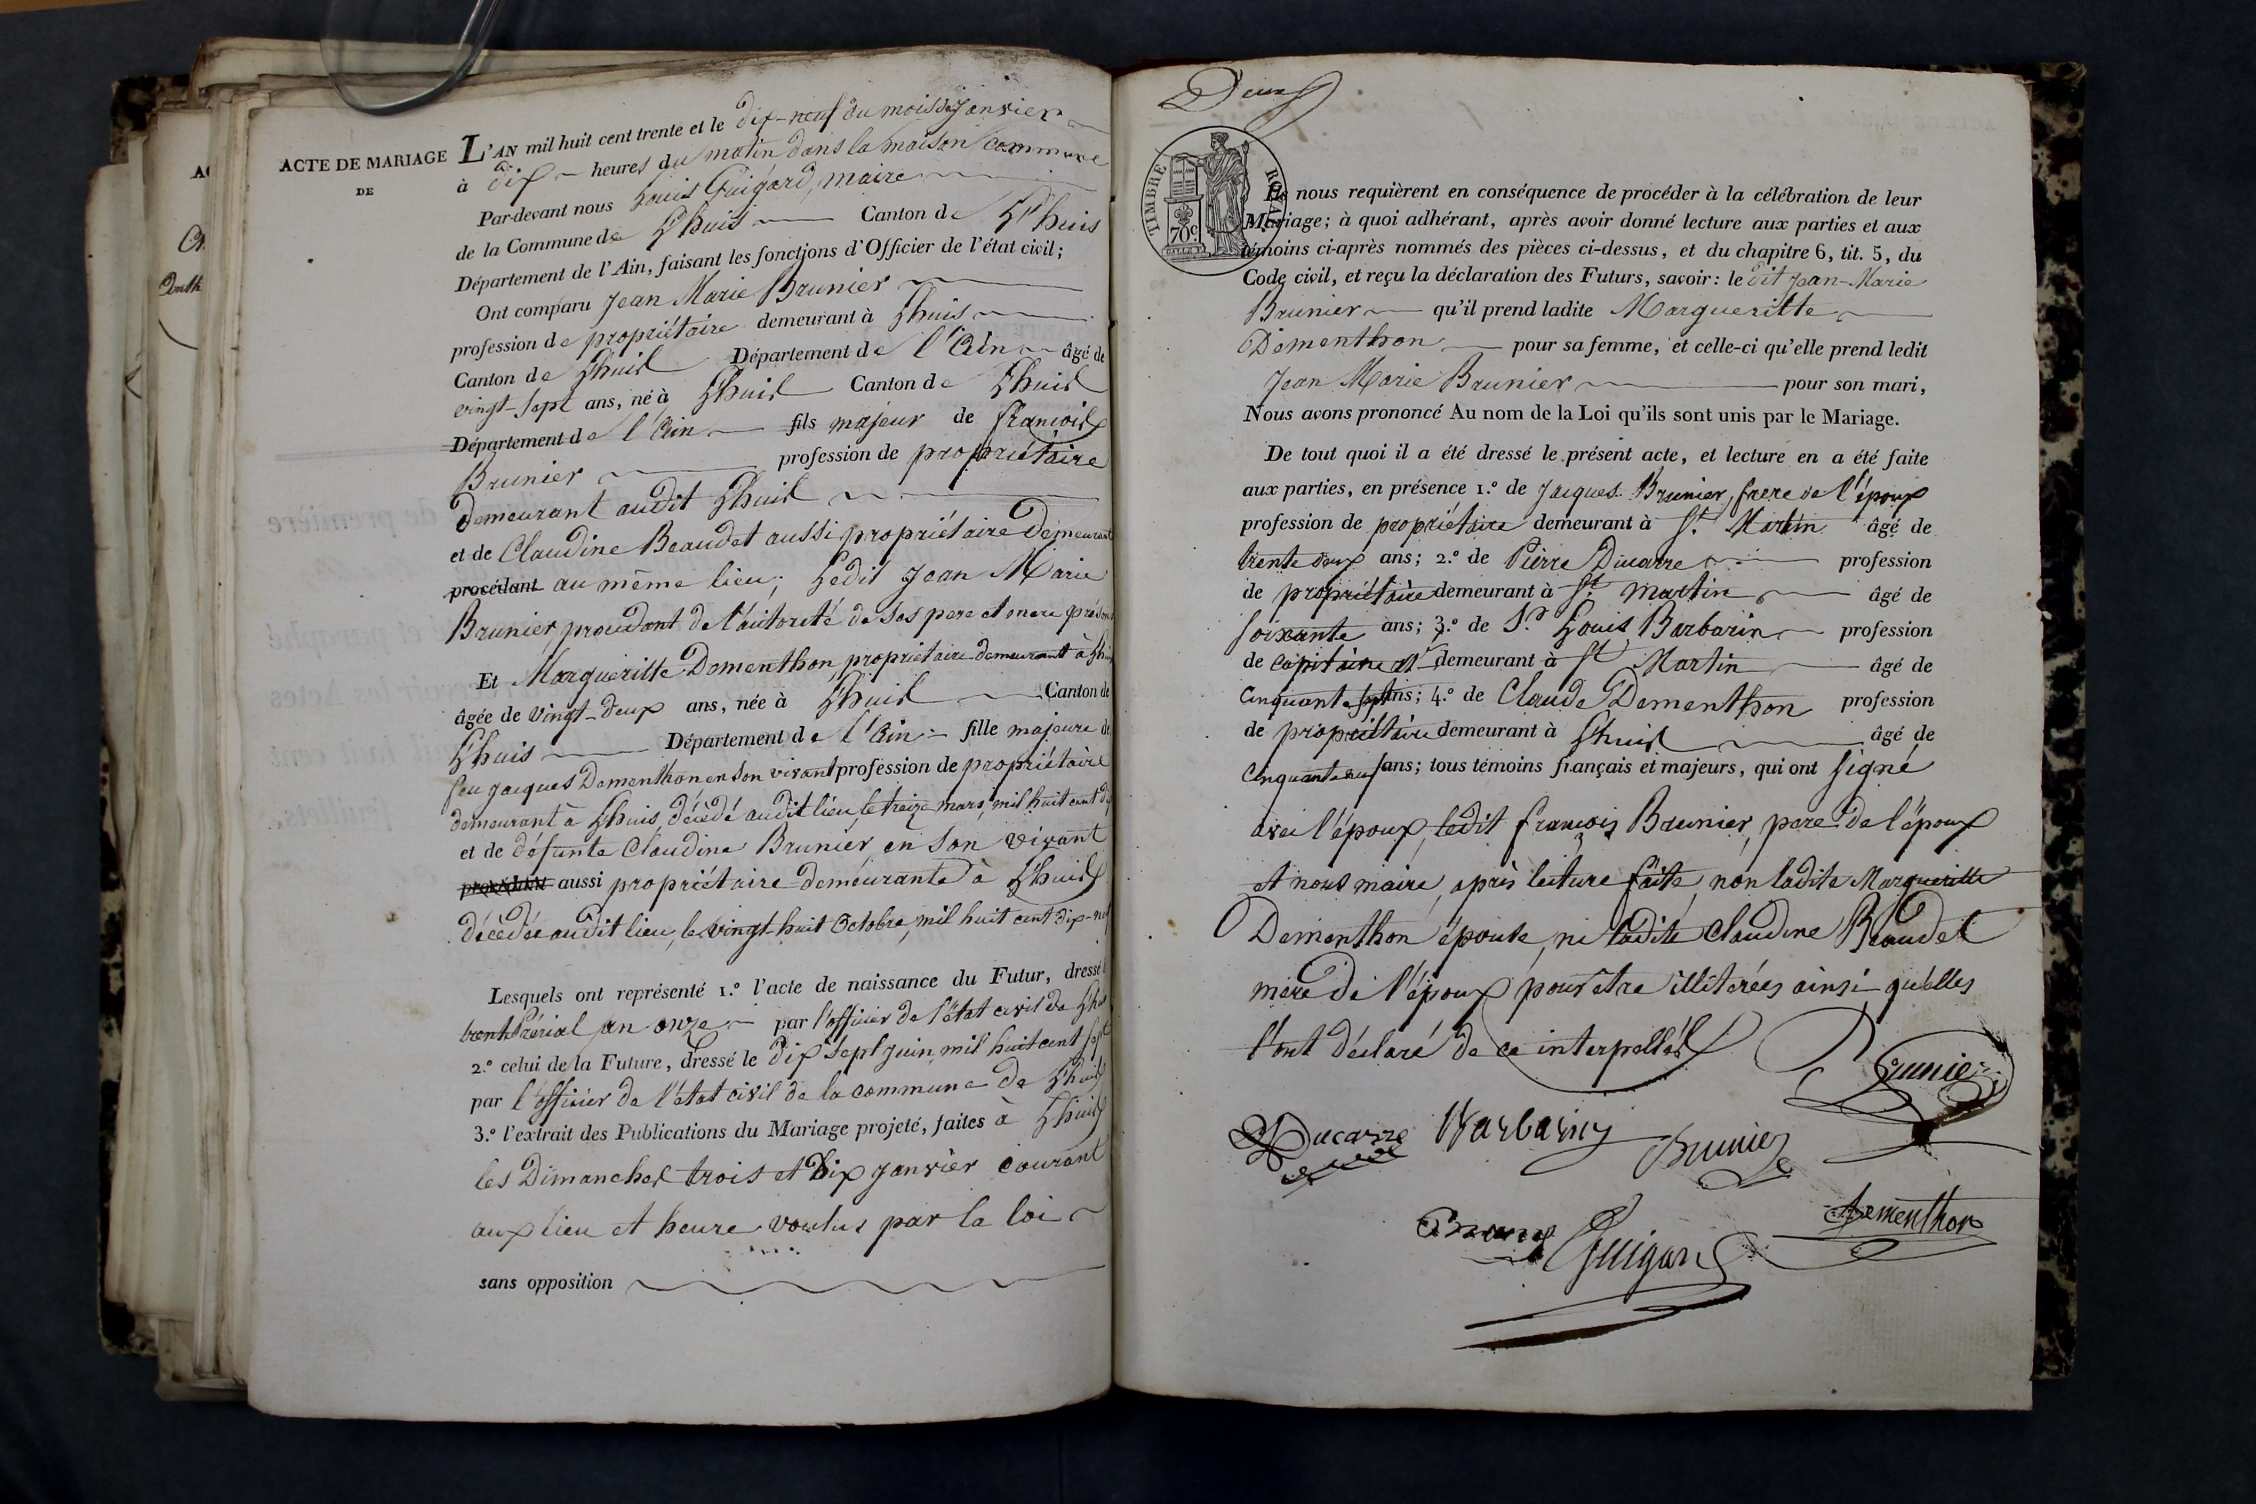 ACTE DE MARIAGE
DE
L'AN mil huit cent trente et le dix-neuf du mois de Janvier
à dix heures du matin dans la maison commune
Par-devant nous Louis Guigard, maire
de la Commune de Lhuis Canton de Lhuis
Département de l'Ain, faisant les fonctions d'Officier de l'état civil;
Ont comparu Jean Marie Brunier
profession de propriétaire demeurant à Lhuis
Canton de Lhuis Département de l'Ain âgé de
vingt-sept ans, né à Lhuis Canton de Lhuis
Département de l'Ain fils majeur de françois
Brunier profession de propriétaire
demeurant audit Lhuis
et de Claudine Beaudet aussi propriétaire demeurant
procédant au même lieu; Ledit Jean Marie
Brunier procédant de l'autorité de ses pere et mere présens
Et Margueritte Dementhon, propriétaire demeurant à Lhuis
âgée de vingt-deux ans, née à Lhuis Canton de
Lhuis Département de l'Ain fille majeure de
feu Jacques Dementhon en son vivant profession de propriétaire
demeurant à Lhuis, décédé audit lieu, le treize mars, mil huit cent dix
et de défunte Claudine Brunier en son vivant
aussi propriétaire demeurante à Lhuis
décédée audit lieu, le vingt-huit Octobre, mil huit cent dix-neuf
Lesquels ont représenté 1.º l'acte de naissance du Futur, dressé le
trente Prérial an onze par l'officier de l'état civil de Lhuis
2.º celui de la Future, dressé le dix sept juin, mil huit cent sept
par l'officier de l'état civil de la commune de Lhuis
3.º l'extrait des Publications du Mariage projeté, faites à Lhuis
les Dimanches trois et Dix Janvier courant
aux lieu et heure voulus par la loi
sans opposition
Deux
TIMBRE ROYAL
70c
Ils nous requièrent en conséquence de procéder à la célébration de leur
Mariage; à quoi adhérant, après avoir donné lecture aux parties et aux
témoins ci-après nommés des pièces ci-dessus, et du chapitre 6, tit. 5, du
Code civil, et reçu la déclaration des Futurs, savoir: le dit Jean-Marie
Brunier qu'il prend ladite Margueritte
Dementhon pour sa femme, et celle-ci qu'elle prend ledit
Jean Marie Brunier pour son mari,
Nous avons prononcé Au nom de la Loi qu'ils sont unis par le Mariage.
De tout quoi il a été dressé le présent acte, et lecture en a été faite
aux parties, en présence 1.º de Jacques Brunier, frere de l'époux
profession de propriétaire demeurant à St. Martin âgé de
trente deux ans; 2.º de Pierre Ducarre profession
de propriétaire demeurant à St. Martin âgé de
soixante ans; 3.º de Sr. Louis Barbarin profession
de capitaine demeurant à St Martin âgé de
cinquante sept ans; 4.º de Claude Dementhon profession
de propriétaire demeurant à Lhuis âgé de
cinquante neuf ans; tous témoins français et majeurs, qui ont signé
avec l'époux, ledit françois Brunier, pere de l'époux
et nous maire, après lecture faite, non ladite Margueritte
Dementhon épouse, ni ladite Claudine Beaudet
mere de l'époux pour être illiterées ainsi qu'elles
l'ont déclaré de ce interpellés
Brunier
Ducarre Barbarin Brunier
Dementhon
Guigard